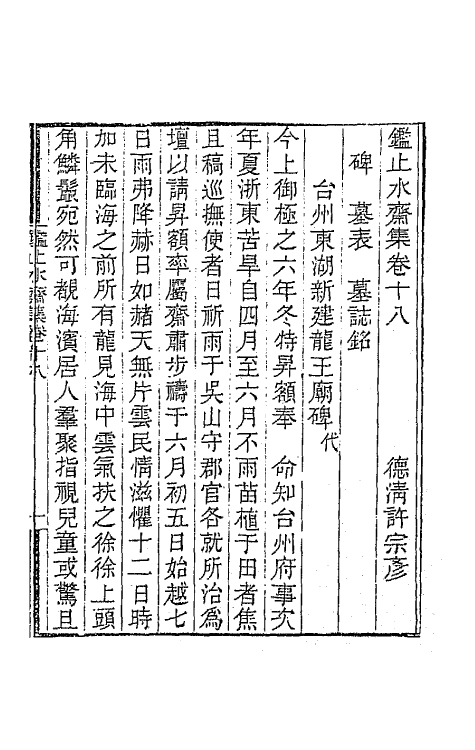 鑑止水齋集卷十八
德清許宗彥
碑　墓表　墓誌銘
台州東湖新建龍王廟碑代
今上御極之六年冬特昇額奉　命知台州府事次
年夏浙東苦旱自四月至六月不雨苗植于田者焦
且稿巡撫使者日祈雨于吳山守郡官各就所治爲
壇以請昇額率屬齋肅步禱于六月初五日始越七
日雨弗降赫日如赭天無片雲民情滋懼十二日時
加未臨海之前所有龍見海中雲氣扶之徐徐上頭
角鱗鬣宛然可覩海濱居人羣聚指視兒童或驚且
鑑止水齋集卷十八
一